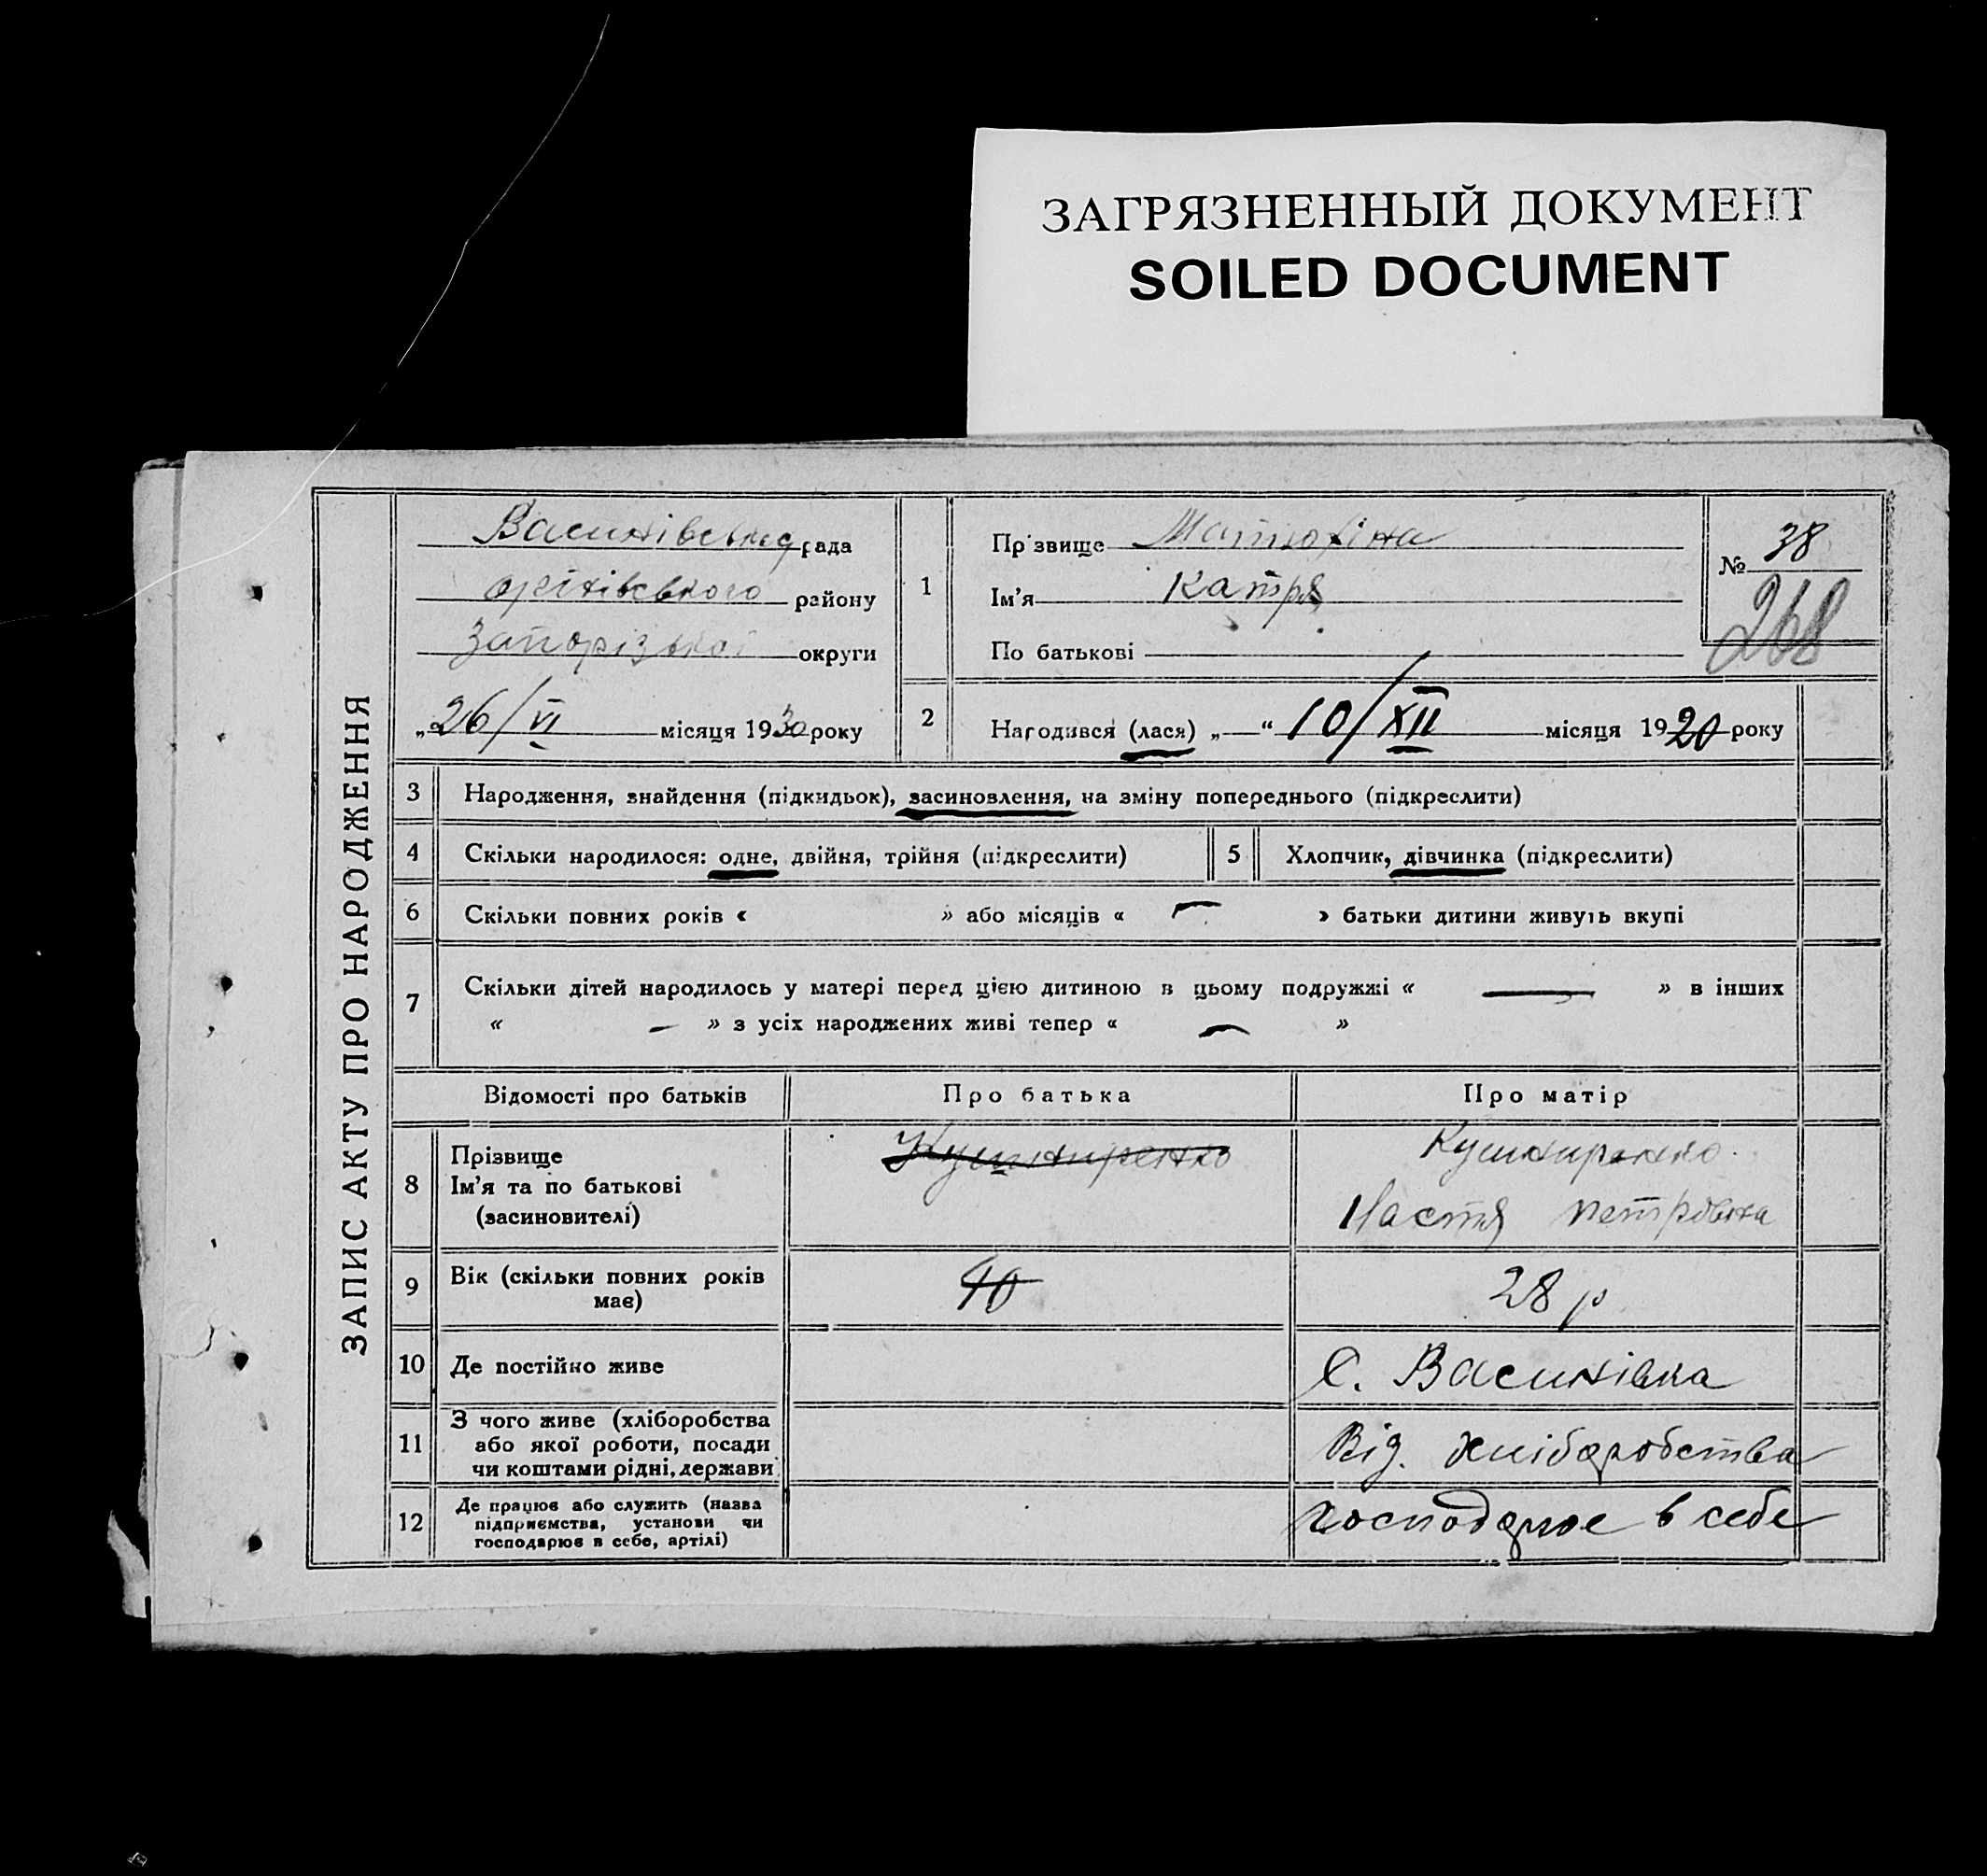 ЗАГРЯЗНЕННЫЙ ДОКУМЕНТ
SOILED DOCUMENT
ЗАПИС АКТУ ПРО НАРОДЖЕННЯ
Василівська рада
оріхівського району
Запорізької округи
„26/VI місяця 1930 року
1
Прізвище Матюхіна
Ім'я Катря
По батькові
№ 38
268
2
Народився (лася) „ “ 10/XII місяця 1920 року
3 Народження, знайдення (підкидьок), засиновлення, на зміну попереднього (підкреслити)
4 Скільки народилося: одне, двійня, трійня (підкреслити) 5 Хлопчик, дівчинка (підкреслити)
6 Скільки повних років « » або місяців « — » батьки дитини живуть вкупі
7 Скільки дітей народилось у матері перед цією дитиною в цьому подружжі « — » в інших
« — » з усіх народжених живі тепер « — »
Відомості про батьків Про батька Про матір
8 Прізвище
Ім'я та по батькові
(засиновителі)
Кушниренко
Кушниренко
Настя петровна
9 Вік (скільки повних років
має)
40
28 р
10 Де постійно живе
С. Василівка
11 З чого живе (хліборобства
або якої роботи, посади
чи коштами рідні, держави
Від. хліборобства
12 Де працює або служить (назва
підприємства, установи чи
господарює в себе, артілі)
господарює в себе